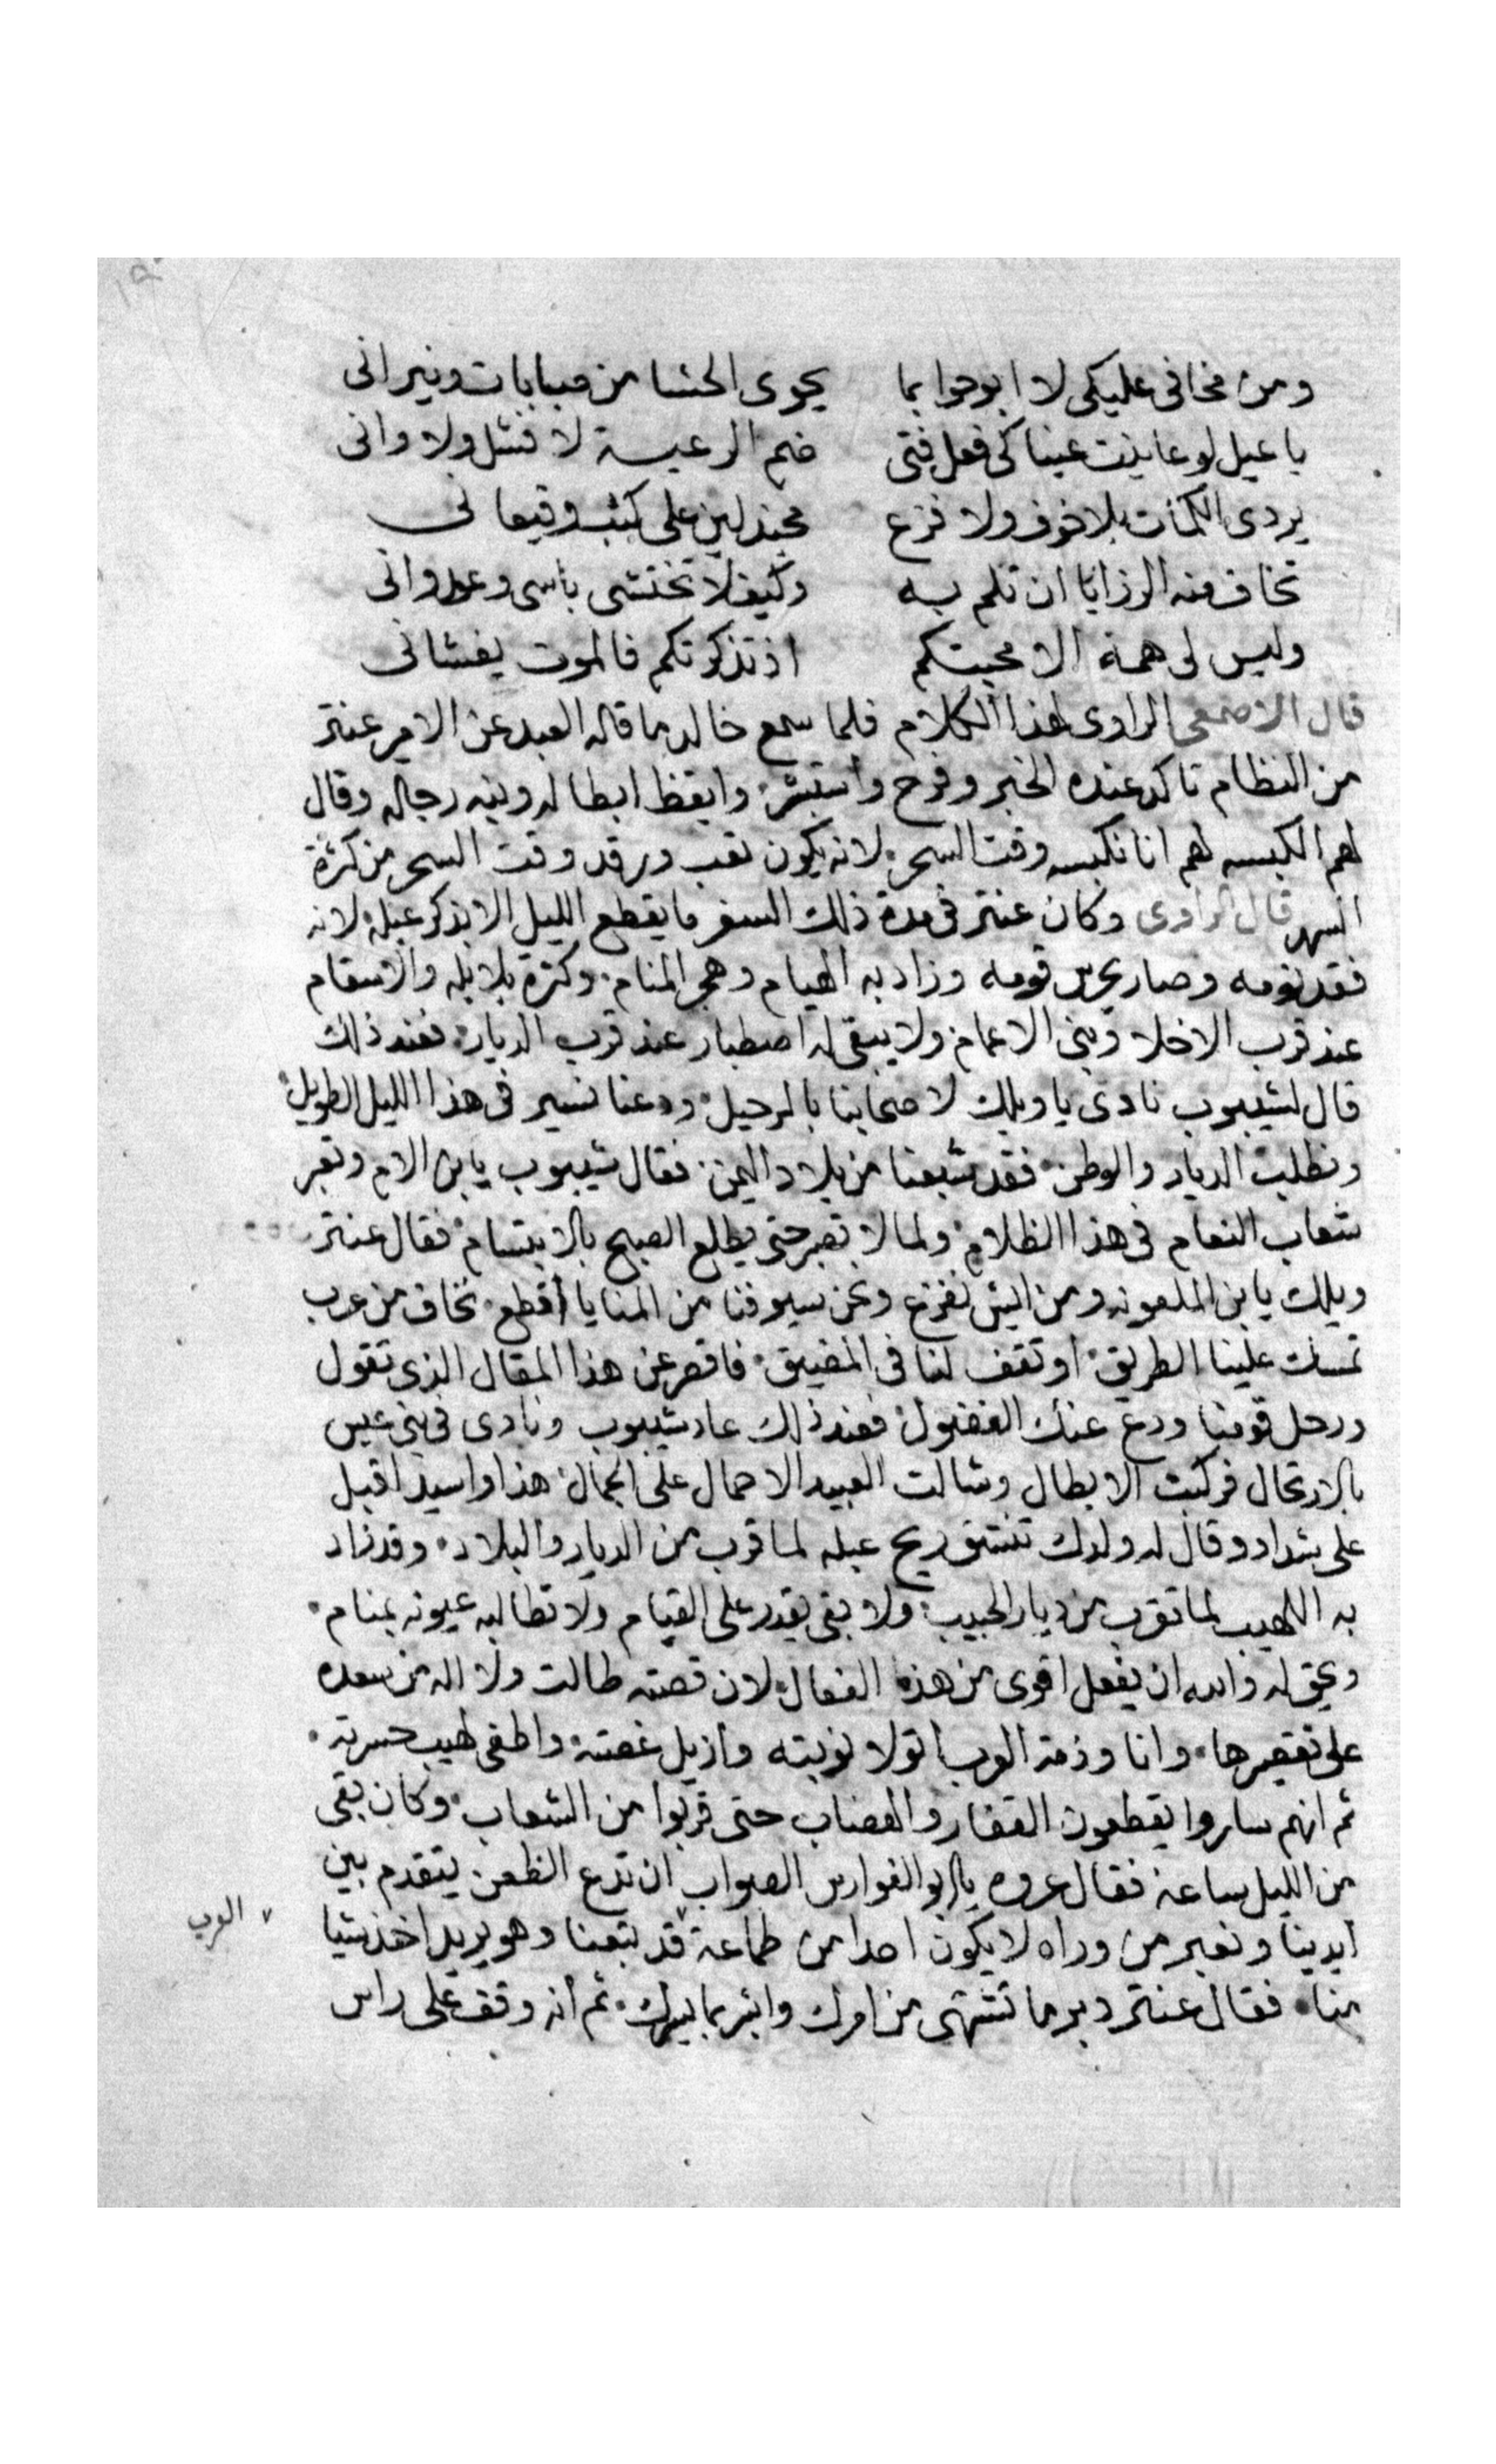 ومن مخافى عليكى لا ابوحوا بما يحوى الحشا من صبابات ونيرانى
يا عبل لو عاينت عيناكى فعل فتى ضخم الرعيسة لا فشل ولا وانى
يردى الكمات بلا خوف ولا فزع مجندلين على كثب وقيعانى
تخاف منه الرزايا ان تلم به وكيف لا تختشى باسى وعدوانى
وليس لى همة الا محبتكم اذ تذكرتكم فالموت يغشانى
قال الاصمعى الراوى لهذا الكلام فلما سمع خالد ما قاله العبد عن الامير عنتر
من النظام تاكد عنده الخبر وفرح واستبشر وايقظ ابطاله ونبه رجاله وقال
لهم الكبسه لهم انا نكبسه وقت السحر لانه يكون تعب ورقد وقت السحر من كثرة
السهر قال الراوى وكان عنتر فى مدة ذلك السفر ما يقطع الليل الا بذكر عبله لانه
فقد نومه وصار يحرس قومه وزاد به الهيام وهجر المنام وكثرة بلابله والاسقام
عند قرب الاخلا وبنى الاعمام ولا يبقى له اصطبار عند قرب الديار فعند ذلك
قال لشيبوب نادى يا ويلك لاصحابنا بالرحيل ودعنا نسير فى هذا الليل الطويل
ونطلب الديار والوطن فقد شبعنا من بلاد اليمن فقال شيبوب يا بن الام ونعبر
شعاب النعام فى هذا الظلام ولما لا تصبر حتى يطلع الصبح بالابتسام فقال عنتر
ويلك يا بن الملعونه ومن ايش نفزع ونحن سيوفنا من المنايا أقطع تخاف من عرب
تمسك علينا الطريق او تقف لنا فى المضيق فاقصر عن هذا المقال الذى تقول
ورحل قومنا ودع عنك الفضول فعند ذلك عاد شيبوب ونادى فى بنى عبس
بالارتحال فركبت الابطال وشالت العبيد الاحمال على الجمال هذا واسيد اقبل
على شداد وقال له ولدك تنشق ريح عبله لما قرب من الديار والبلاد وقد زاد
به اللهيب لما تقرب من ديار الحبيب ولا بقى يقدر على القيام ولا تطالبه عيونه بمنام
ويحق له والله ان يفعل اقوى من هذه الفعال لان قصته طالت ولا اله من يسعده
على تقصيرها وانا وذمة العرب اتولا نوبته وازيل غصته واطفى لهيب حسرته
ثم انهم ساروا يقطعون القفار والهضاب حتى قربوا من الشعاب وكان بقى
من الليل ساعة فقال عروه يا ابو الفوارس الصواب ان ندع الظعن يتقدم بين
ايدينا ونعبر من وراه لا يكون احدا من طماعة قد تبعنا وهو يريد اخذ شيا
العرب
منا فقال عنتر دبر ما تشتهى من امرك وابشر بما يسرك ثم انه وقف على راس